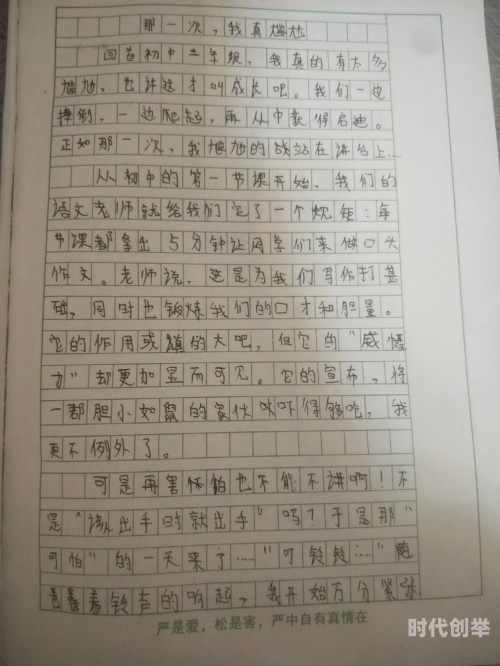 那一次，我真尴尬
回首初中二年级，我真的有太多
尴尬，也许这才叫成长吧。我们一边
摔倒，一边爬起，再从中获得启迪。
正如那一次，我尴尬的站在讲台上……
从初中的第一节课开始，我们的
语文老师就给我们定了一个规矩：每
节课都拿出5分钟让同学们来做口头
作文。老师说，这是为我们写作打基
础，同时也锻炼我们的口才和胆量。
它的作用或的大吧，但它的“威慑
力”却更加显而可见。它的宣布，将
一群胆小如鼠的家伙吓得够呛，我
更不例外了。
可是再害怕也不能不讲啊！不
是“该出手时就出手”吗？于是那“
可怕”的一天来了……“叮铃铃……”随
着铃声的响起，我开始万分紧张
严是爱，松是害，严中自有真情在
时代创举